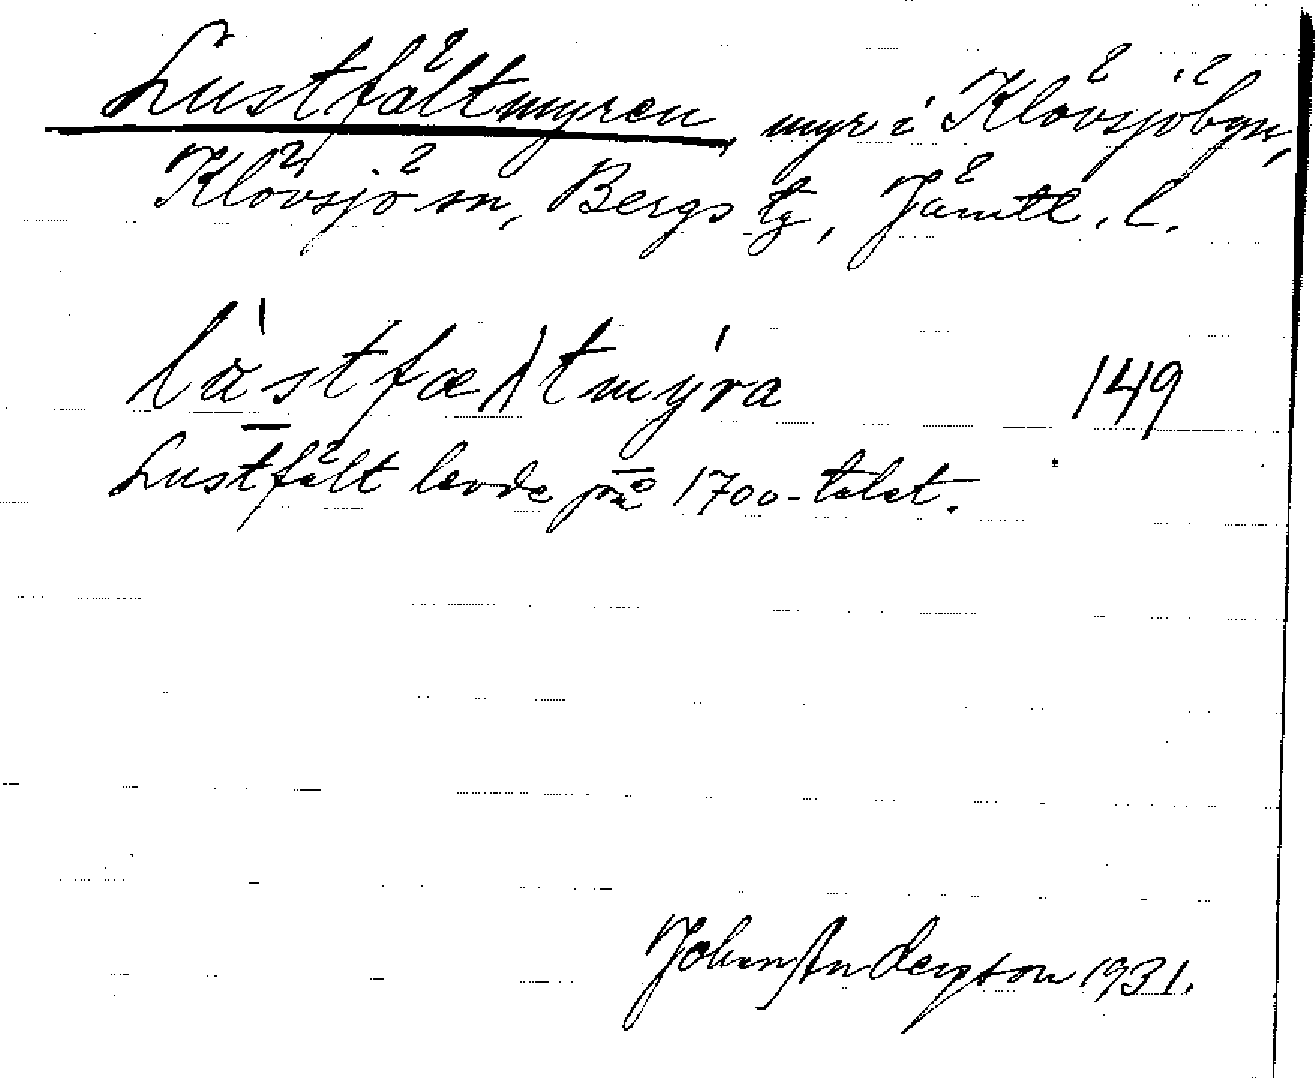 Lustfältmyren, myr i Klövsjöbyn,
Klövsjö sn, Bergs tg, Jämtl. l.
låstfæltmýra 149
Lustfält levde på 1700-talet.
Johan Andersson 1931.